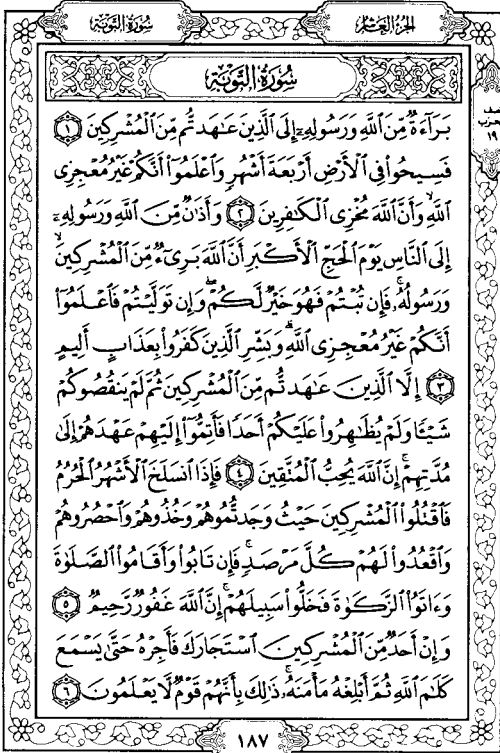 الجزء العاشر
سورة التوبة
سورة التوبة
بَرَآءَةٌ مِّنَ ٱللَّهِ وَرَسُولِهِۦٓ إِلَى ٱلَّذِينَ عَٰهَدتُّم مِّنَ ٱلْمُشْرِكِينَ ١
فَسِيحُوا۟ فِى ٱلْأَرْضِ أَرْبَعَةَ أَشْهُرٍ وَٱعْلَمُوٓا۟ أَنَّكُمْ غَيْرُ مُعْجِزِى
ٱللَّهِ ۙ وَأَنَّ ٱللَّهَ مُخْزِى ٱلْكَٰفِرِينَ ٢ وَأَذَٰنٌ مِّنَ ٱللَّهِ وَرَسُولِهِۦٓ
إِلَى ٱلنَّاسِ يَوْمَ ٱلْحَجِّ ٱلْأَكْبَرِ أَنَّ ٱللَّهَ بَرِىٓءٌ مِّنَ ٱلْمُشْرِكِينَ ۙ
وَرَسُولُهُۥ ۚ فَإِن تُبْتُمْ فَهُوَ خَيْرٌ لَّكُمْ ۖ وَإِن تَوَلَّيْتُمْ فَٱعْلَمُوٓا۟
أَنَّكُمْ غَيْرُ مُعْجِزِى ٱللَّهِ ۗ وَبَشِّرِ ٱلَّذِينَ كَفَرُوا۟ بِعَذَابٍ أَلِيمٍ
٣ إِلَّا ٱلَّذِينَ عَٰهَدتُّم مِّنَ ٱلْمُشْرِكِينَ ثُمَّ لَمْ يَنقُصُوكُمْ
شَيْـًٔا وَلَمْ يُظَٰهِرُوا۟ عَلَيْكُمْ أَحَدًا فَأَتِمُّوٓا۟ إِلَيْهِمْ عَهْدَهُمْ إِلَىٰ
مُدَّتِهِمْ ۚ إِنَّ ٱللَّهَ يُحِبُّ ٱلْمُتَّقِينَ ٤ فَإِذَا ٱنسَلَخَ ٱلْأَشْهُرُ ٱلْحُرُمُ
فَٱقْتُلُوا۟ ٱلْمُشْرِكِينَ حَيْثُ وَجَدتُّمُوهُمْ وَخُذُوهُمْ وَٱحْصُرُوهُمْ
وَٱقْعُدُوا۟ لَهُمْ كُلَّ مَرْصَدٍ ۚ فَإِن تَابُوا۟ وَأَقَامُوا۟ ٱلصَّلَوٰةَ
وَءَاتَوُا۟ ٱلزَّكَوٰةَ فَخَلُّوا۟ سَبِيلَهُمْ ۚ إِنَّ ٱللَّهَ غَفُورٌ رَّحِيمٌ ٥
وَإِنْ أَحَدٌ مِّنَ ٱلْمُشْرِكِينَ ٱسْتَجَارَكَ فَأَجِرْهُ حَتَّىٰ يَسْمَعَ
كَلَٰمَ ٱللَّهِ ثُمَّ أَبْلِغْهُ مَأْمَنَهُۥ ۚ ذَٰلِكَ بِأَنَّهُمْ قَوْمٌ لَّا يَعْلَمُونَ ٦
١٨٧
الحزب
١٩